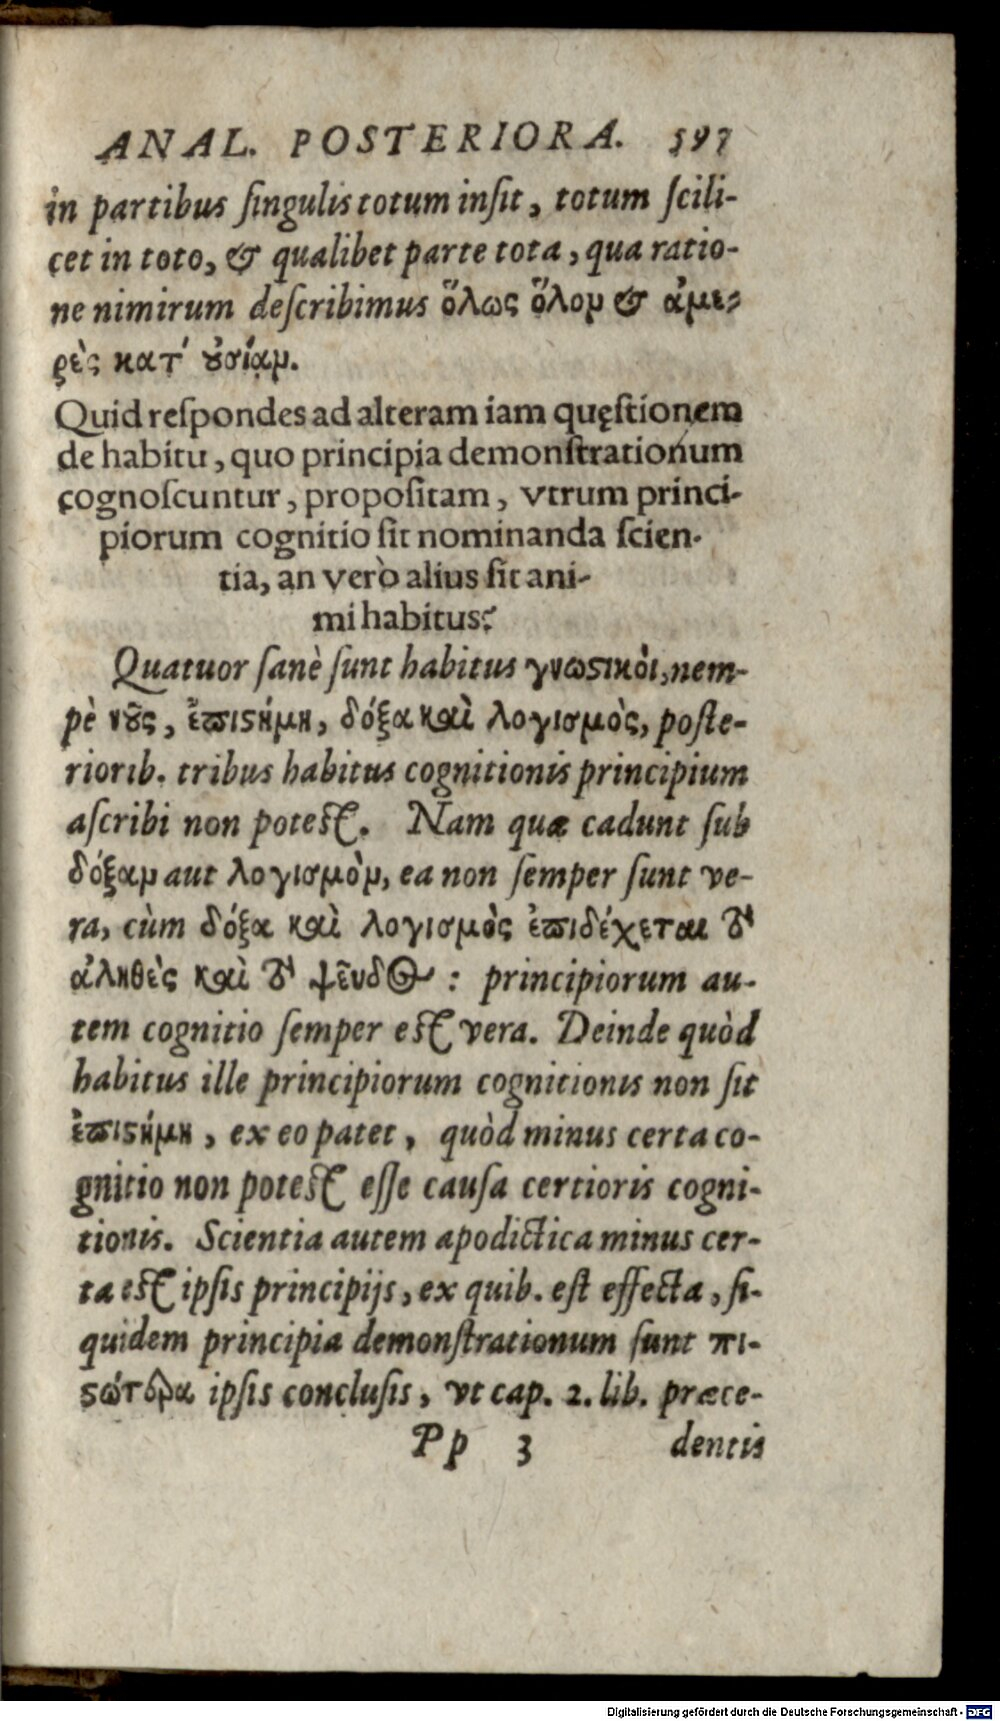 ANAL. POSTERIORA. 597
in partibus ſingulis totum inſit, totum ſcili-
cet in toto, & qualibet parte tota, qua ratio-
ne nimirum deſcribimus ὅλως ὅλον & ἀμε-
ρὲς κατ' ȣ̓σίαν.
Quid reſpondes ad alteram iam quęſtionem
de habitu, quo principia demonſtrationum
cognoſcuntur, propoſitam, vtrum princi-
piorum cognitio ſit nominanda ſcien-
tia, an verò alius ſit ani-
mi habitus?
Quatuor ſanè ſunt habitus γνωϛικὸι, nem-
pè νȣ͂ς, ἐπιϛήμη, δόξα καὶ λογισμὸς, poſte-
riorib. tribus habitus cognitionis principium
aſcribi non poteſt. Nam quæ cadunt ſub
δόξαν aut λογισμὸν, ea non ſemper ſunt ve-
ra, cùm δόξα καὶ λογισμὸς ἐπιδέχεται τὸ
ἀληθὲς καὶ τὸ ψεῦδος : principiorum au-
tem cognitio ſemper eſt vera. Deinde quòd
habitus ille principiorum cognitionis non ſit
ἐπιϛήμη, ex eo patet, quòd minus certa co-
gnitio non poteſt eſſe cauſa certioris cogni-
tionis. Scientia autem apodictica minus cer-
ta eſt ipſis principijs, ex quib. eſt effecta, ſi-
quidem principia demonſtrationum ſunt πι-
ϛώτερα ipſis concluſis, vt cap. 2. lib. præce-
Pp 3 dentis
Digitalisierung gefördert durch die Deutsche Forschungsgemeinschaft - DFG